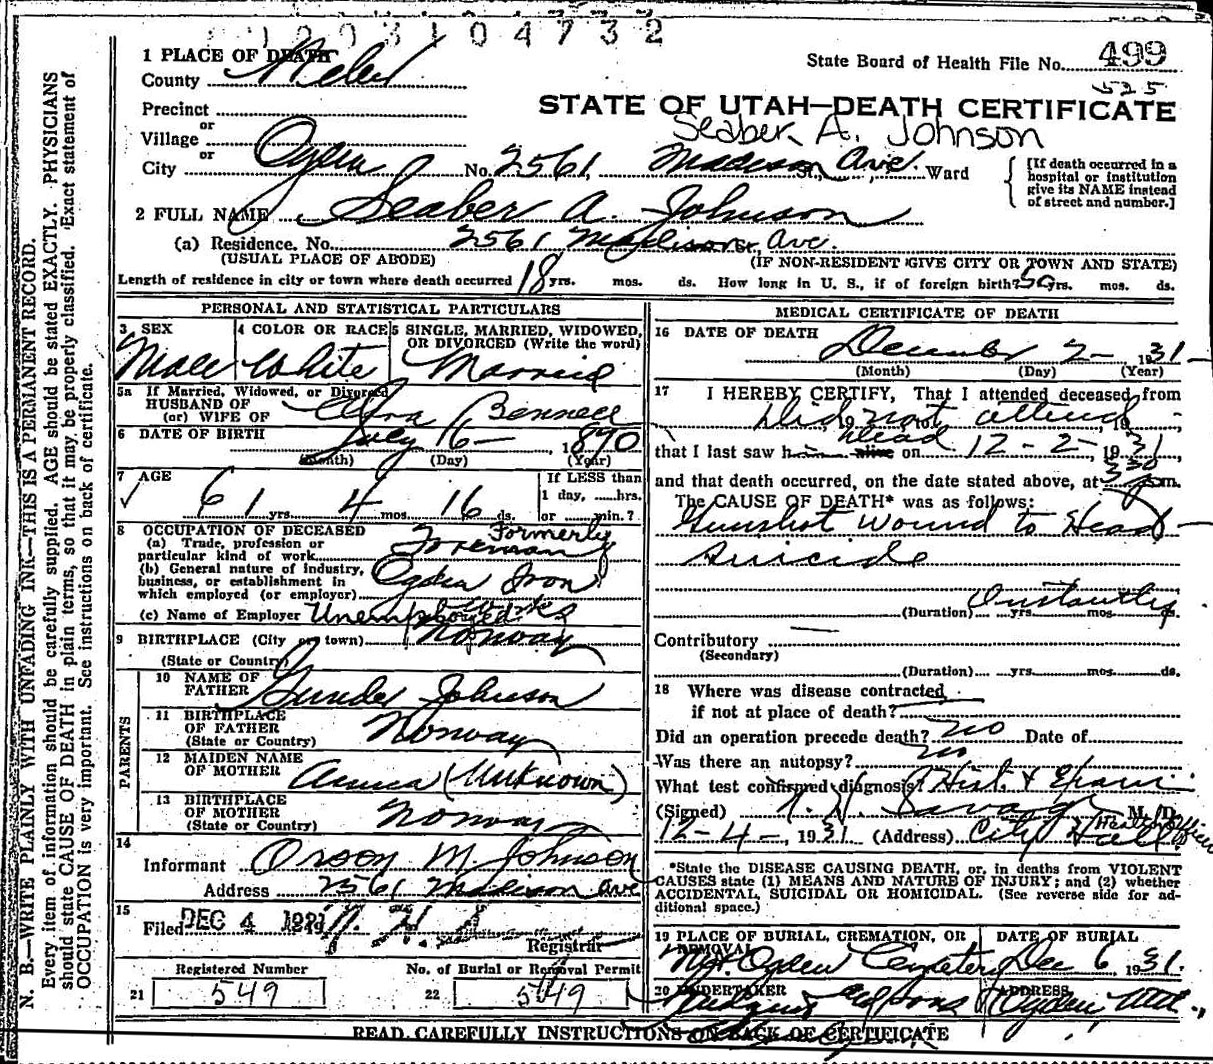 1203104732
1 PLACE OF DEATH
State Board of Health File No. 499
County Weber
525
Precinct
STATE OF UTAH—DEATH CERTIFICATE
or
Seaber A. Johnson
Village
or
City Ogden No. 2561 Madison St., Ave. Ward
[If death occurred in a hospital or institution give its NAME instead of street and number.]
2 FULL NAME Seaber A. Johnson
(a) Residence. No. 2561 Madison Ave.
(USUAL PLACE OF ABODE) (IF NON-RESIDENT GIVE CITY OR TOWN AND STATE)
Length of residence in city or town where death occurred 18 yrs. mos. ds. How long in U. S., if of foreign birth? 50 yrs. mos. ds.
PERSONAL AND STATISTICAL PARTICULARS
3 SEX 4 COLOR OR RACE 5 SINGLE, MARRIED, WIDOWED, OR DIVORCED (Write the word)
Male White Married
5a If Married, Widowed, or Divorced
HUSBAND OF
(or) WIFE OF Bennett
6 DATE OF BIRTH July 16— 1870
(Month) (Day) (Year)
7 AGE If LESS than
1 day, ......hrs.
61 yrs. 4 mos. 16 ds. or ......min.?
8 OCCUPATION OF DECEASED
(a) Trade, profession or particular kind of work Formerly Foreman
(b) General nature of industry, business, or establishment in which employed (or employer) Ogden Iron Works
(c) Name of Employer Unemployed
9 BIRTHPLACE (City or town) Norway
(State or Country)
PARENTS
10 NAME OF FATHER Gunder Johnson
11 BIRTHPLACE OF FATHER Norway
(State or Country)
12 MAIDEN NAME OF MOTHER Anna (Unknown)
13 BIRTHPLACE OF MOTHER Norway
(State or Country)
14
Informant Orson M Johnson
Address 2561 Madison Ave
15
Filed DEC 4 1931
Registrar
Registered Number No. of Burial or Removal Permit
21 549 22 549
MEDICAL CERTIFICATE OF DEATH
16 DATE OF DEATH
December 2— 1931—
(Month) (Day) (Year)
17 I HEREBY CERTIFY, That I attended deceased from
Did not attend
that I last saw h alive on dead 12-2-, 1931,
and that death occurred, on the date stated above, at 330 p.m.
The CAUSE OF DEATH* was as follows:
Gunshot Wound to Head—
Suicide
(Duration) Instantly yrs. mos. ds.
Contributory
(Secondary)
(Duration) yrs. mos. ds.
18 Where was disease contracted
if not at place of death?
Did an operation precede death? no Date of
Was there an autopsy? no
What test confirmed diagnosis? Hist. & Exam
(Signed) M. D.
12-4-, 1931 (Address) City Hall Health Officer
*State the DISEASE CAUSING DEATH, or, in deaths from VIOLENT
CAUSES state (1) MEANS AND NATURE OF INJURY; and (2) whether
ACCIDENTAL, SUICIDAL OR HOMICIDAL. (See reverse side for additional space.)
19 PLACE OF BURIAL, CREMATION, OR REMOVAL DATE OF BURIAL
Mt. Ogden Cemetery Dec 6, 1931.
20 UNDERTAKER ADDRESS
& Sons Ogden, Utah.
READ CAREFULLY INSTRUCTIONS ON BACK OF CERTIFICATE
N. B.—WRITE PLAINLY WITH UNFADING INK—THIS IS A PERMANENT RECORD.
Every item of information should be carefully supplied. AGE should be stated EXACTLY. PHYSICIANS
should state CAUSE OF DEATH in plain terms, so that it may be properly classified. Exact statement of
OCCUPATION is very important. See instructions on back of certificate.